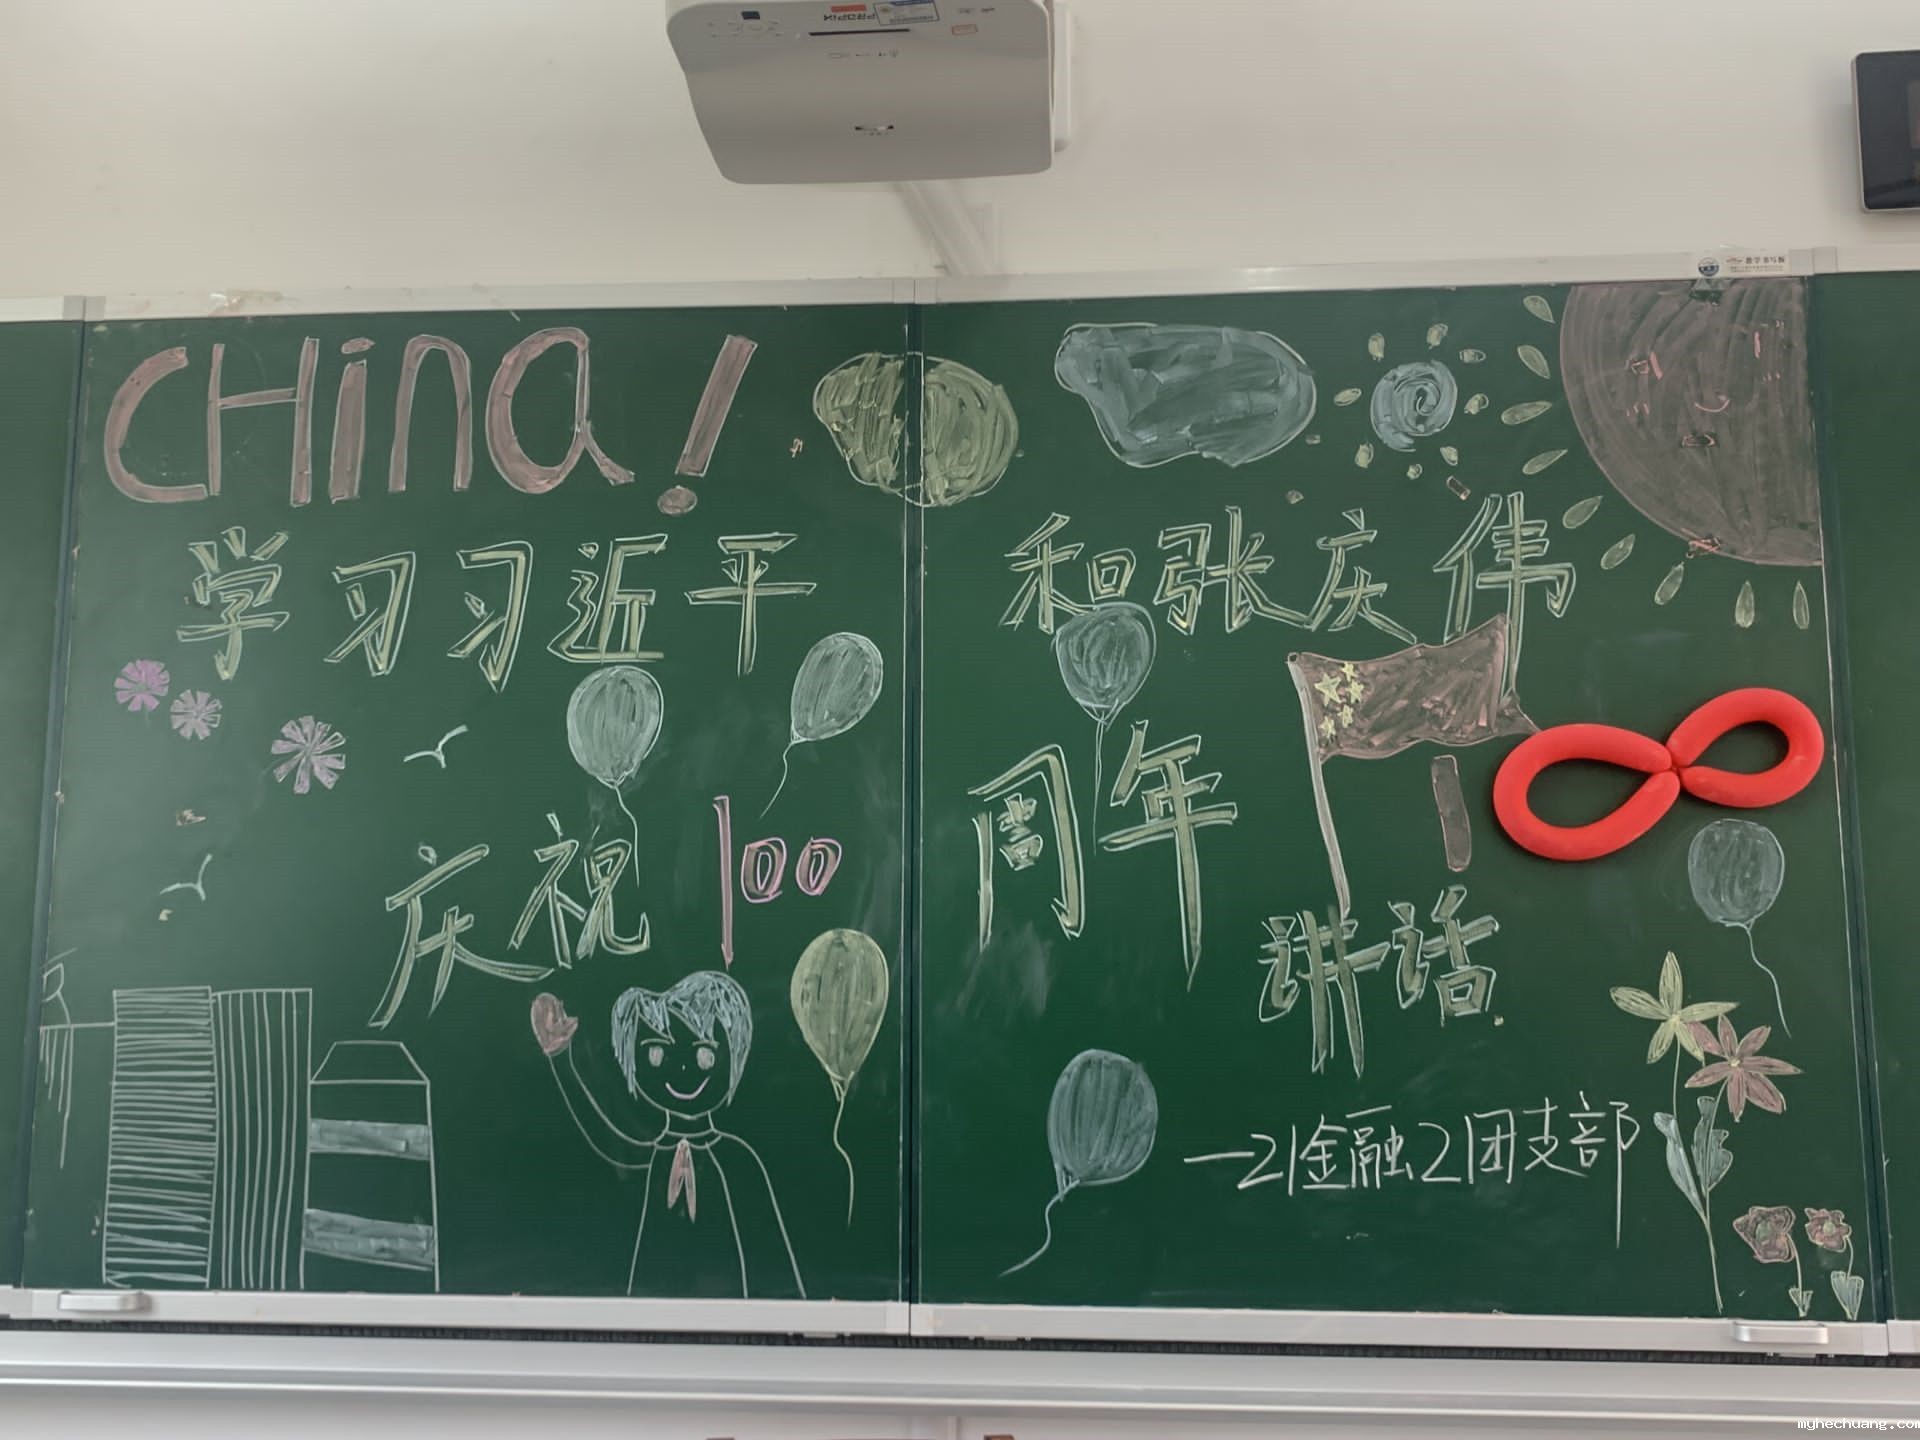 CHina!
学习习近平 和张庆伟
庆祝100 周年
讲话
—21金融2团支部
教学书写板
PROPIX
myhechuang.com